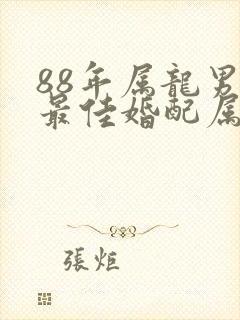 88年属龍男
最佳婚配属
張炬